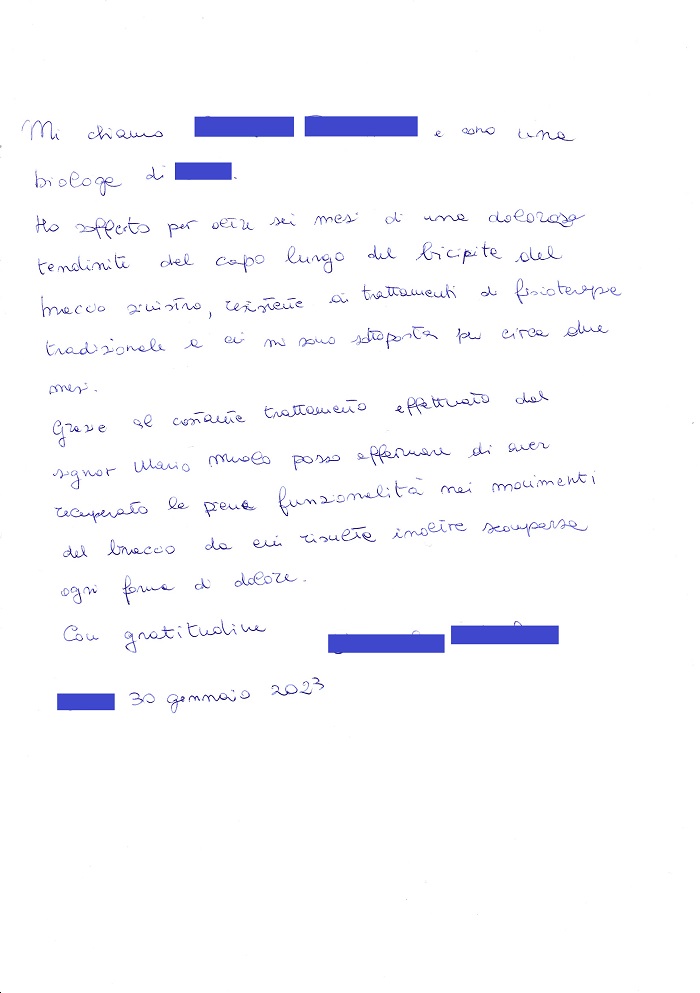 Mi chiamo e sono una
biologa di .
Ho sofferto per oltre sei mesi di una dolorosa
tendinite del capo lungo del bicipite del
braccio sinistro, resistente ai trattamenti di fisioterapia
tradizionale a cui mi sono sottoposta per circa due
mesi.
Grazie al costante trattamento effettuato dal
signor Mario posso affermare di aver
recuperato la piena funzionalità nei movimenti
del braccio da cui risulta inoltre scomparsa
ogni forma di dolore.
Con gratitudine
30 gennaio 2023